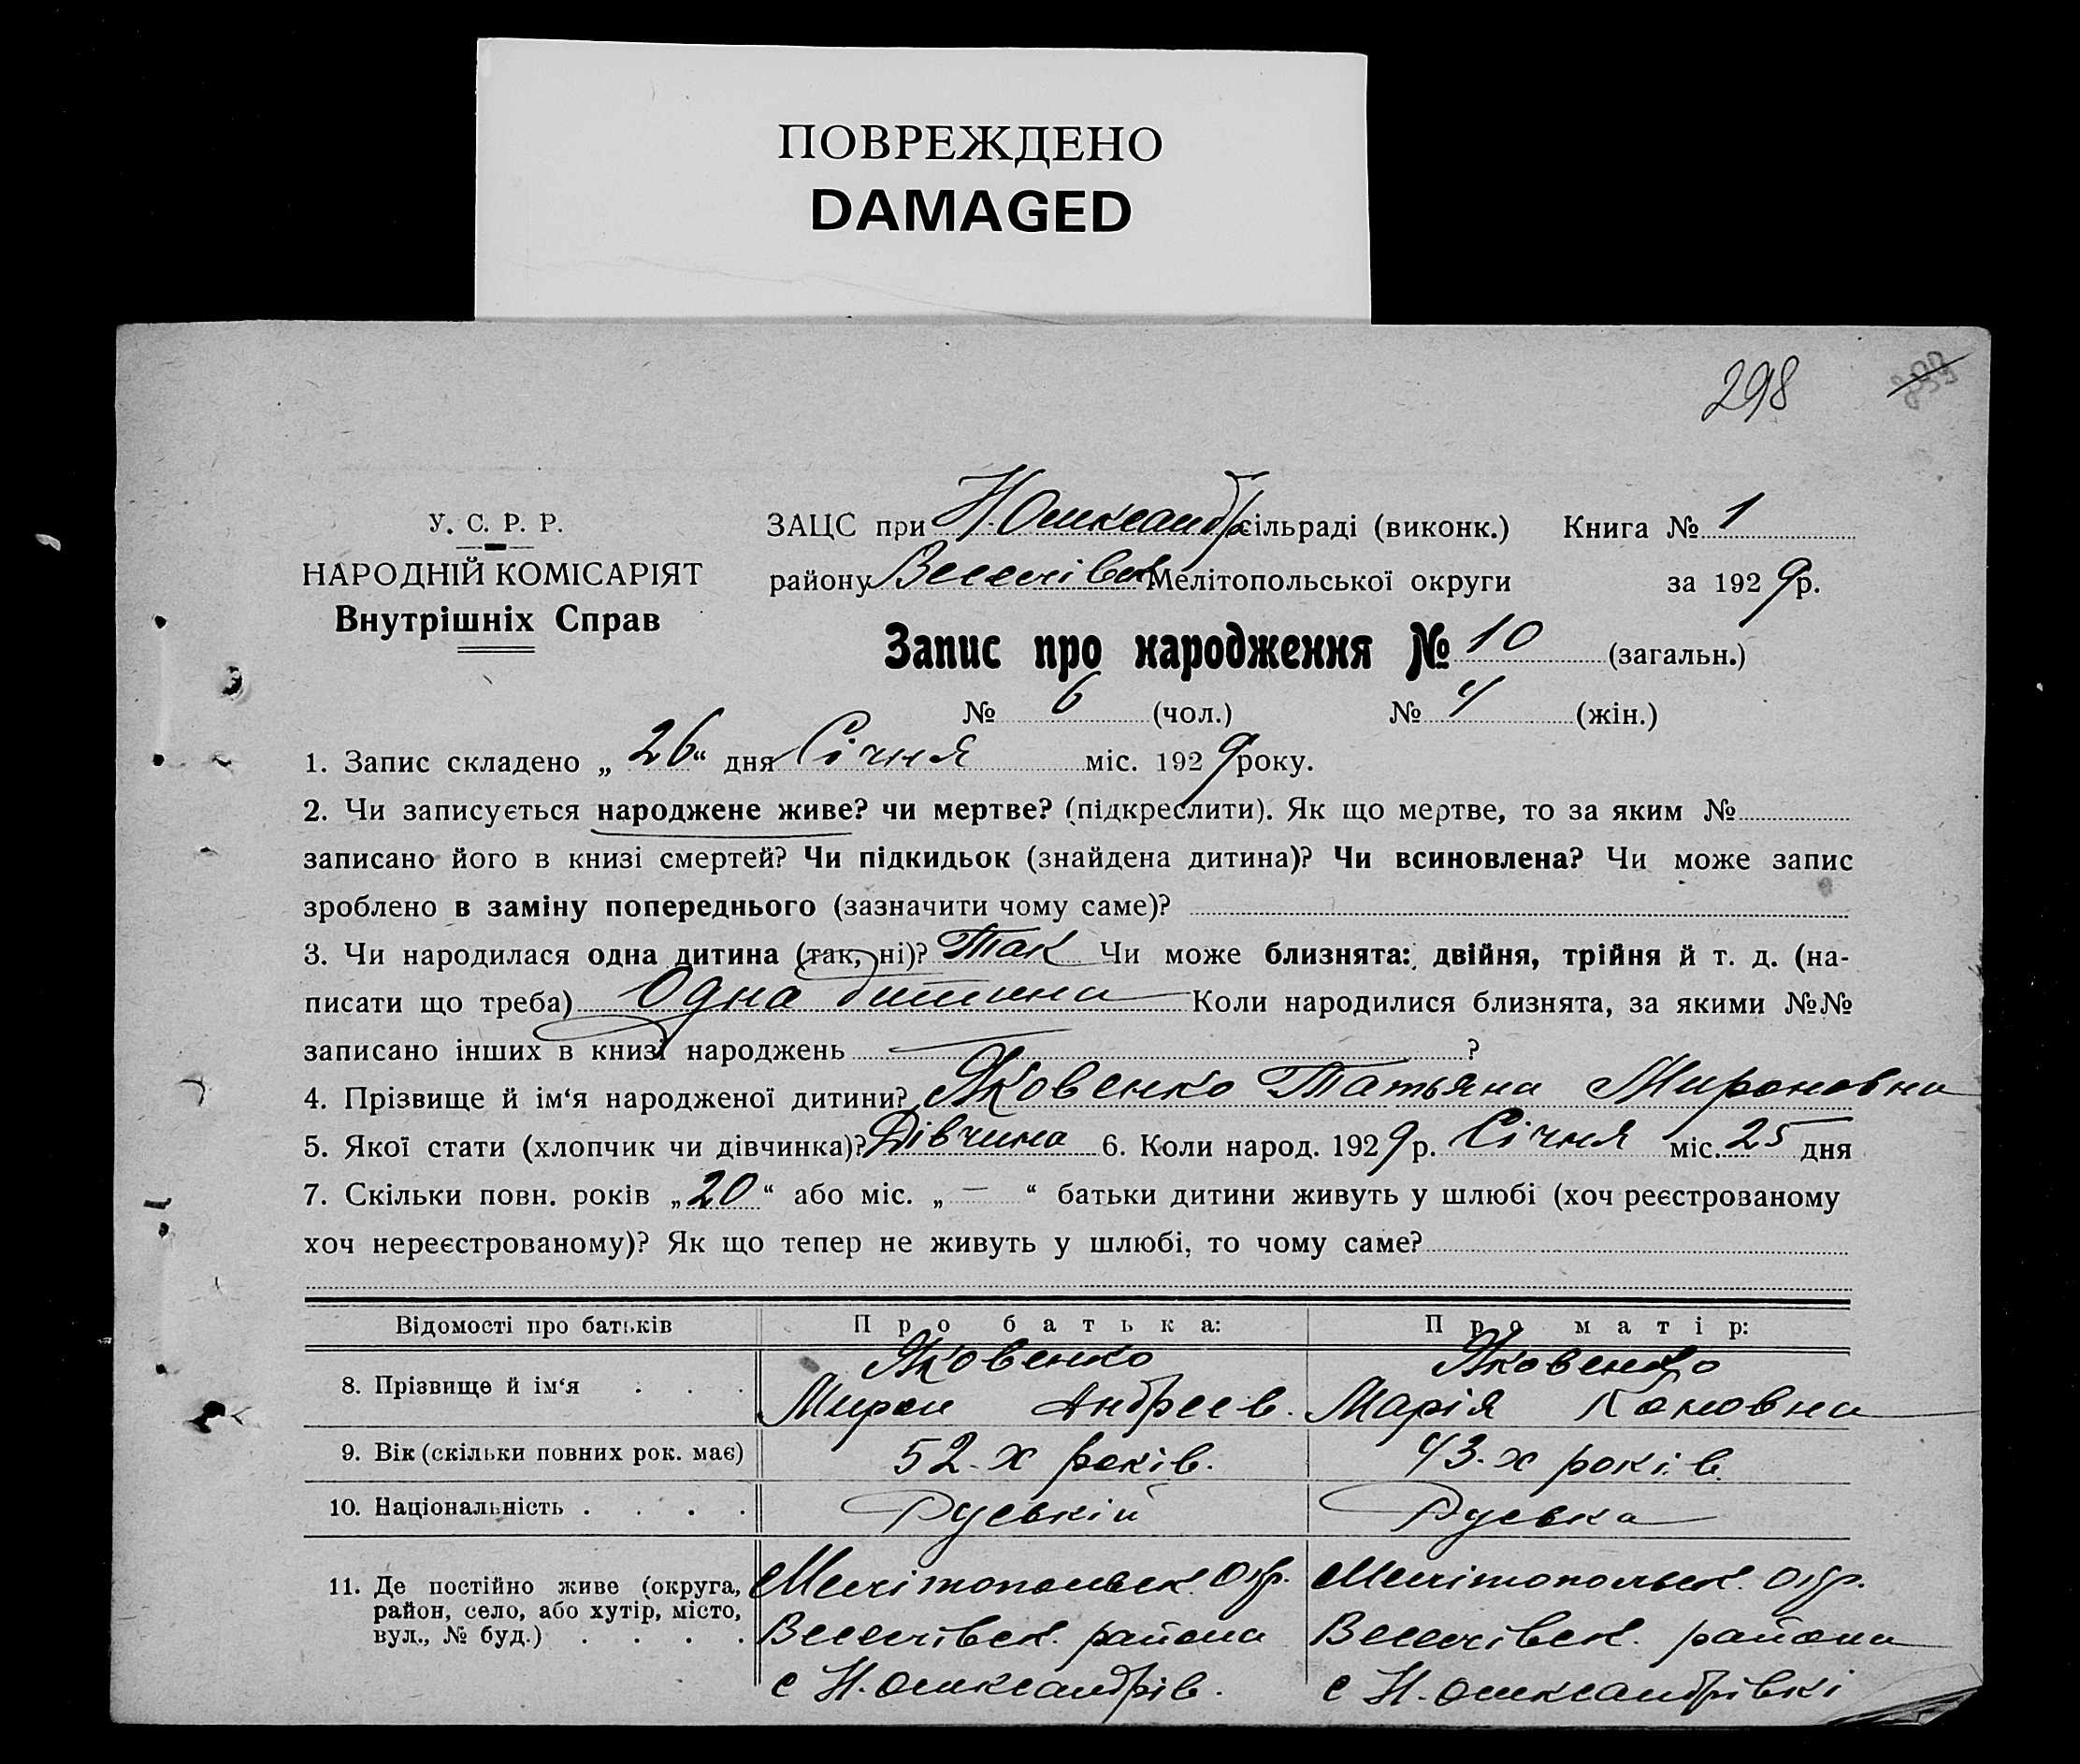 ПОВРЕЖДЕНО
DAMAGED
298
У. С. Р. Р.
НАРОДНІЙ КОМІСАРІЯТ
Внутрішніх Справ
ЗАЦС при Н. Олександр. сільраді (виконк.) Книга № 1
району Веселівск Мелітопольської округи за 1929 р.
Запис про народження № 10 (загальн.)
№ 6 (чол.) № 4 (жін.)
1. Запис складено „26“ дня Січня міс. 1929 року.
2. Чи записується народжене живе? чи мертве? (підкреслити). Як що мертве, то за яким №
записано його в книзі смертей? Чи підкидьок (знайдена дитина)? Чи всиновлена? Чи може запис
зроблено в заміну попереднього (зазначити чому саме)?
3. Чи народилася одна дитина (так, ні)? Так Чи може близнята: двійня, трійня й т. д. (на-
писати що треба) Одна дитина Коли народилися близнята, за якими №№
записано інших в книзі народжень ?
4. Прізвище й ім‘я народженої дитини? Яковенко Татьяна Мироновна
5. Якої стати (хлопчик чи дівчинка)? Дівчина 6. Коли народ. 1929 р. Січня міс. 25 дня
7. Скільки повн. років „20“ або міс. „—“ батьки дитини живуть у шлюбі (хоч реєстрованому
хоч нереєстрованому)? Як що тепер не живуть у шлюбі, то чому саме?
Відомості про батьків Про батька: Про матір:
8. Прізвище й ім‘я . . . Яковенко Мирон Андреев. Яковенко Марія
9. Вік (скільки повних рок. має) 52-х років. 43-х років.
10. Національність . . . . Руській Руська
11. Де постійно живе (округа, район, село, або хутір, місто, вул., № буд.) . . . .
Мелітопольск. Окр. Мелітопольск. Окр.
Веселівск. района Веселівск. района
с Н. Олександрів. с Н. Олександрівкі